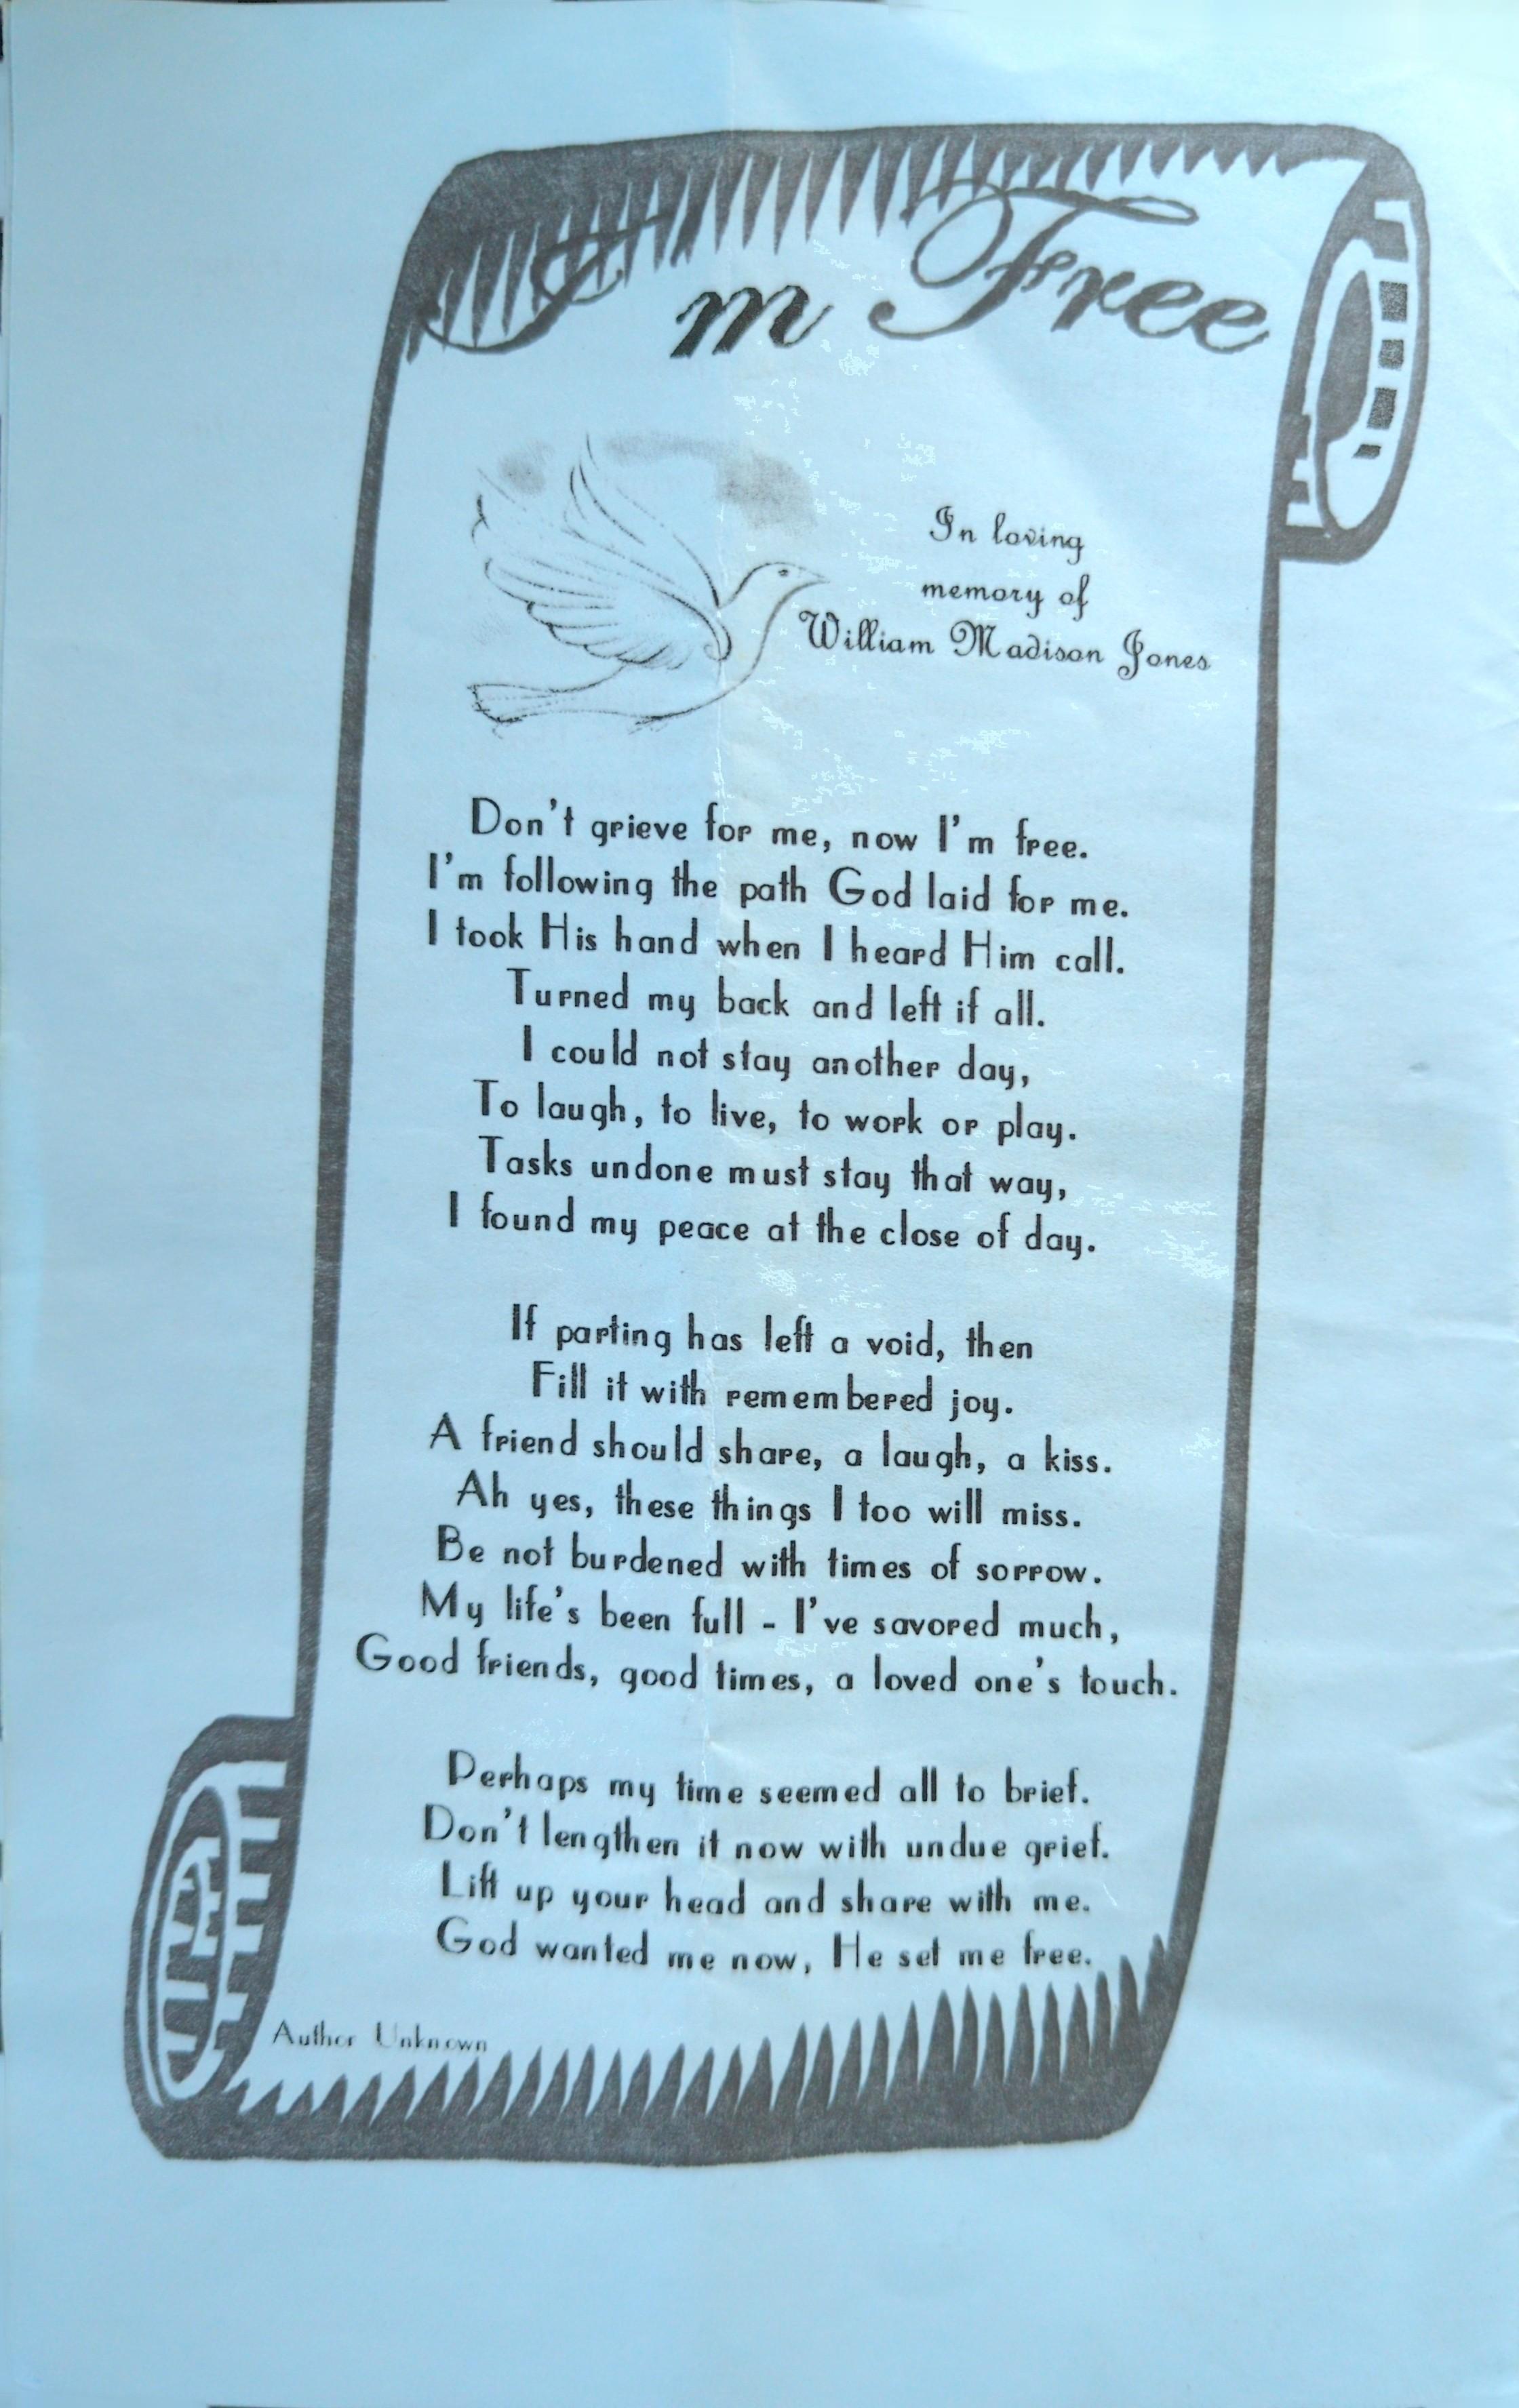 I m Free
In loving
memory of
William Madison Jones
Don't grieve for me, now I'm free.
I'm following the path God laid for me.
I took His hand when I heard Him call.
Turned my back and left if all.
I could not stay another day,
To laugh, to live, to work or play.
Tasks undone must stay that way,
I found my peace at the close of day.
If parting has left a void, then
Fill it with remembered joy.
A friend should share, a laugh, a kiss.
Ah yes, these things I too will miss.
Be not burdened with times of sorrow.
My life's been full - I've savored much,
Good friends, good times, a loved one's touch.
Perhaps my time seemed all to brief.
Don't lengthen it now with undue grief.
Lift up your head and share with me.
God wanted me now, He set me free.
Author Unknown